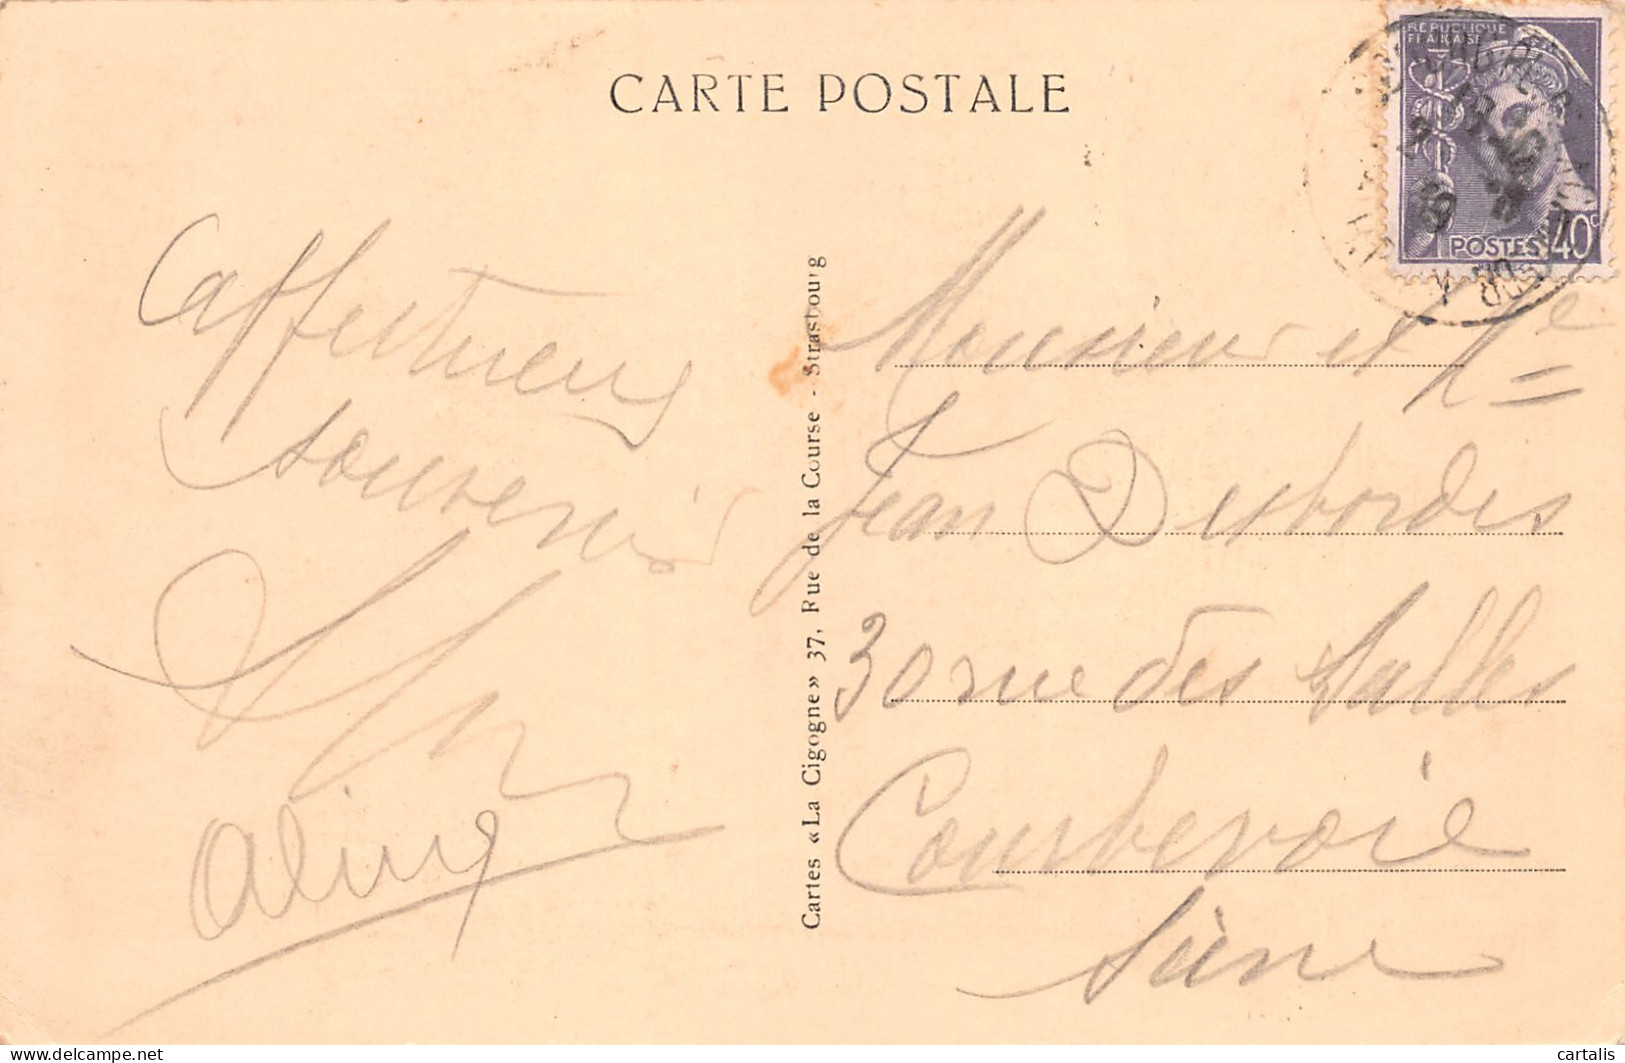 CARTE POSTALE
RÉPUBLIQUE
FRANÇAISE
POSTES 40c
Affectueux
souvenir
Aline
Cartes «La Cigogne» 37, Rue de la Course - Strasbourg
Monsieur et Me
Jean Desbordes
30 rue des Salles
Courbevoie
Seine
delcampe.net
cartalis